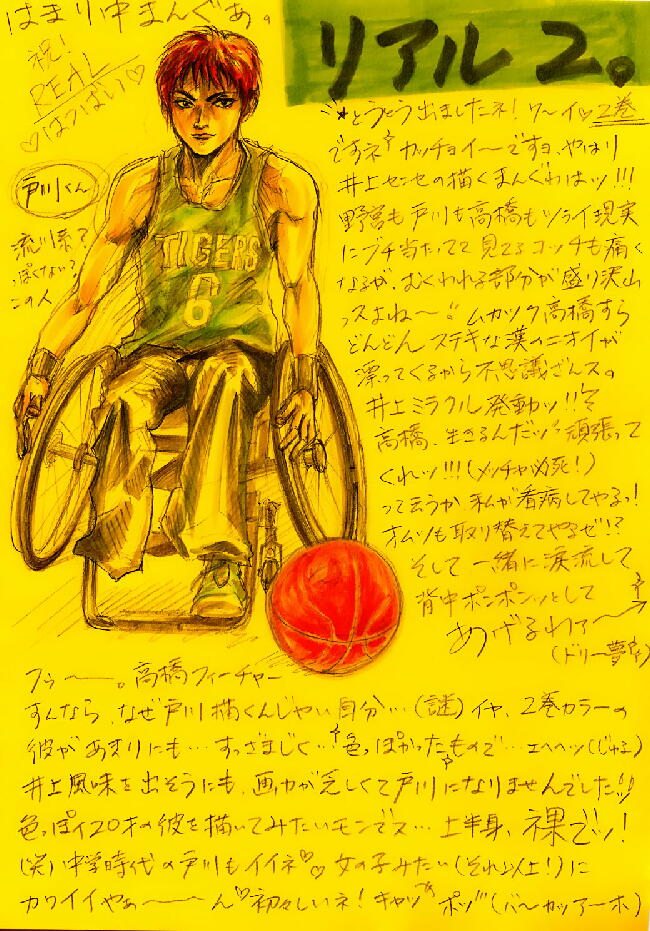 はまり中まんぐぁ。
祝!
REAL
♡はつばい♡
リアル 2。
戸川くん
流川系で
ぽくない?
この人
TIGERS
6
★とうとう出ましたネ!ワ〜イ♡2巻
ですネ カッチョイ〜ですヨ、やはり
井上センセの描くまんぐわはッ!!!
野宮も戸川も高橋もツライ現実
にブチ当たってて見てるコッチも痛く
なるが、むくわれる部分が盛り沢山
っスよね〜 ムカツク高橋すら
どんどんステキな漢のニオイが
漂ってくるから不思議ざんスの
井上ミラクル発動ッ!!
高橋、生きるんだッ 頑張って
くれッ!!!(メッチャ必死!)
って云うか私が看病してやるっ!
オムツも取り替えてやるゼ!?
そして一緒に涙流して
背中ポンポンッとして
あげるわァ〜→
(ドリー夢)
フゥ〜。高橋フィーチャー
すんなら、なぜ戸川描くんじゃい自分…(謎)イヤ、2巻カラーの
彼があまりにも…すっざまじく…色っぽかったもので…エヘヘッ(じゅる)
井上風味を出そうにも、画力が乏しくて戸川になりませんでした!!
色っぽイ20才の彼を描いてみたいモンでス…上半身、裸でッ!
(笑)中学時代の戸川もイイネ♡♡女の子みたい(それ以上!)に
カワイイやぁ〜〜ん♡初々しいネ!キャッ ポッ(バ〜カッアーホ)